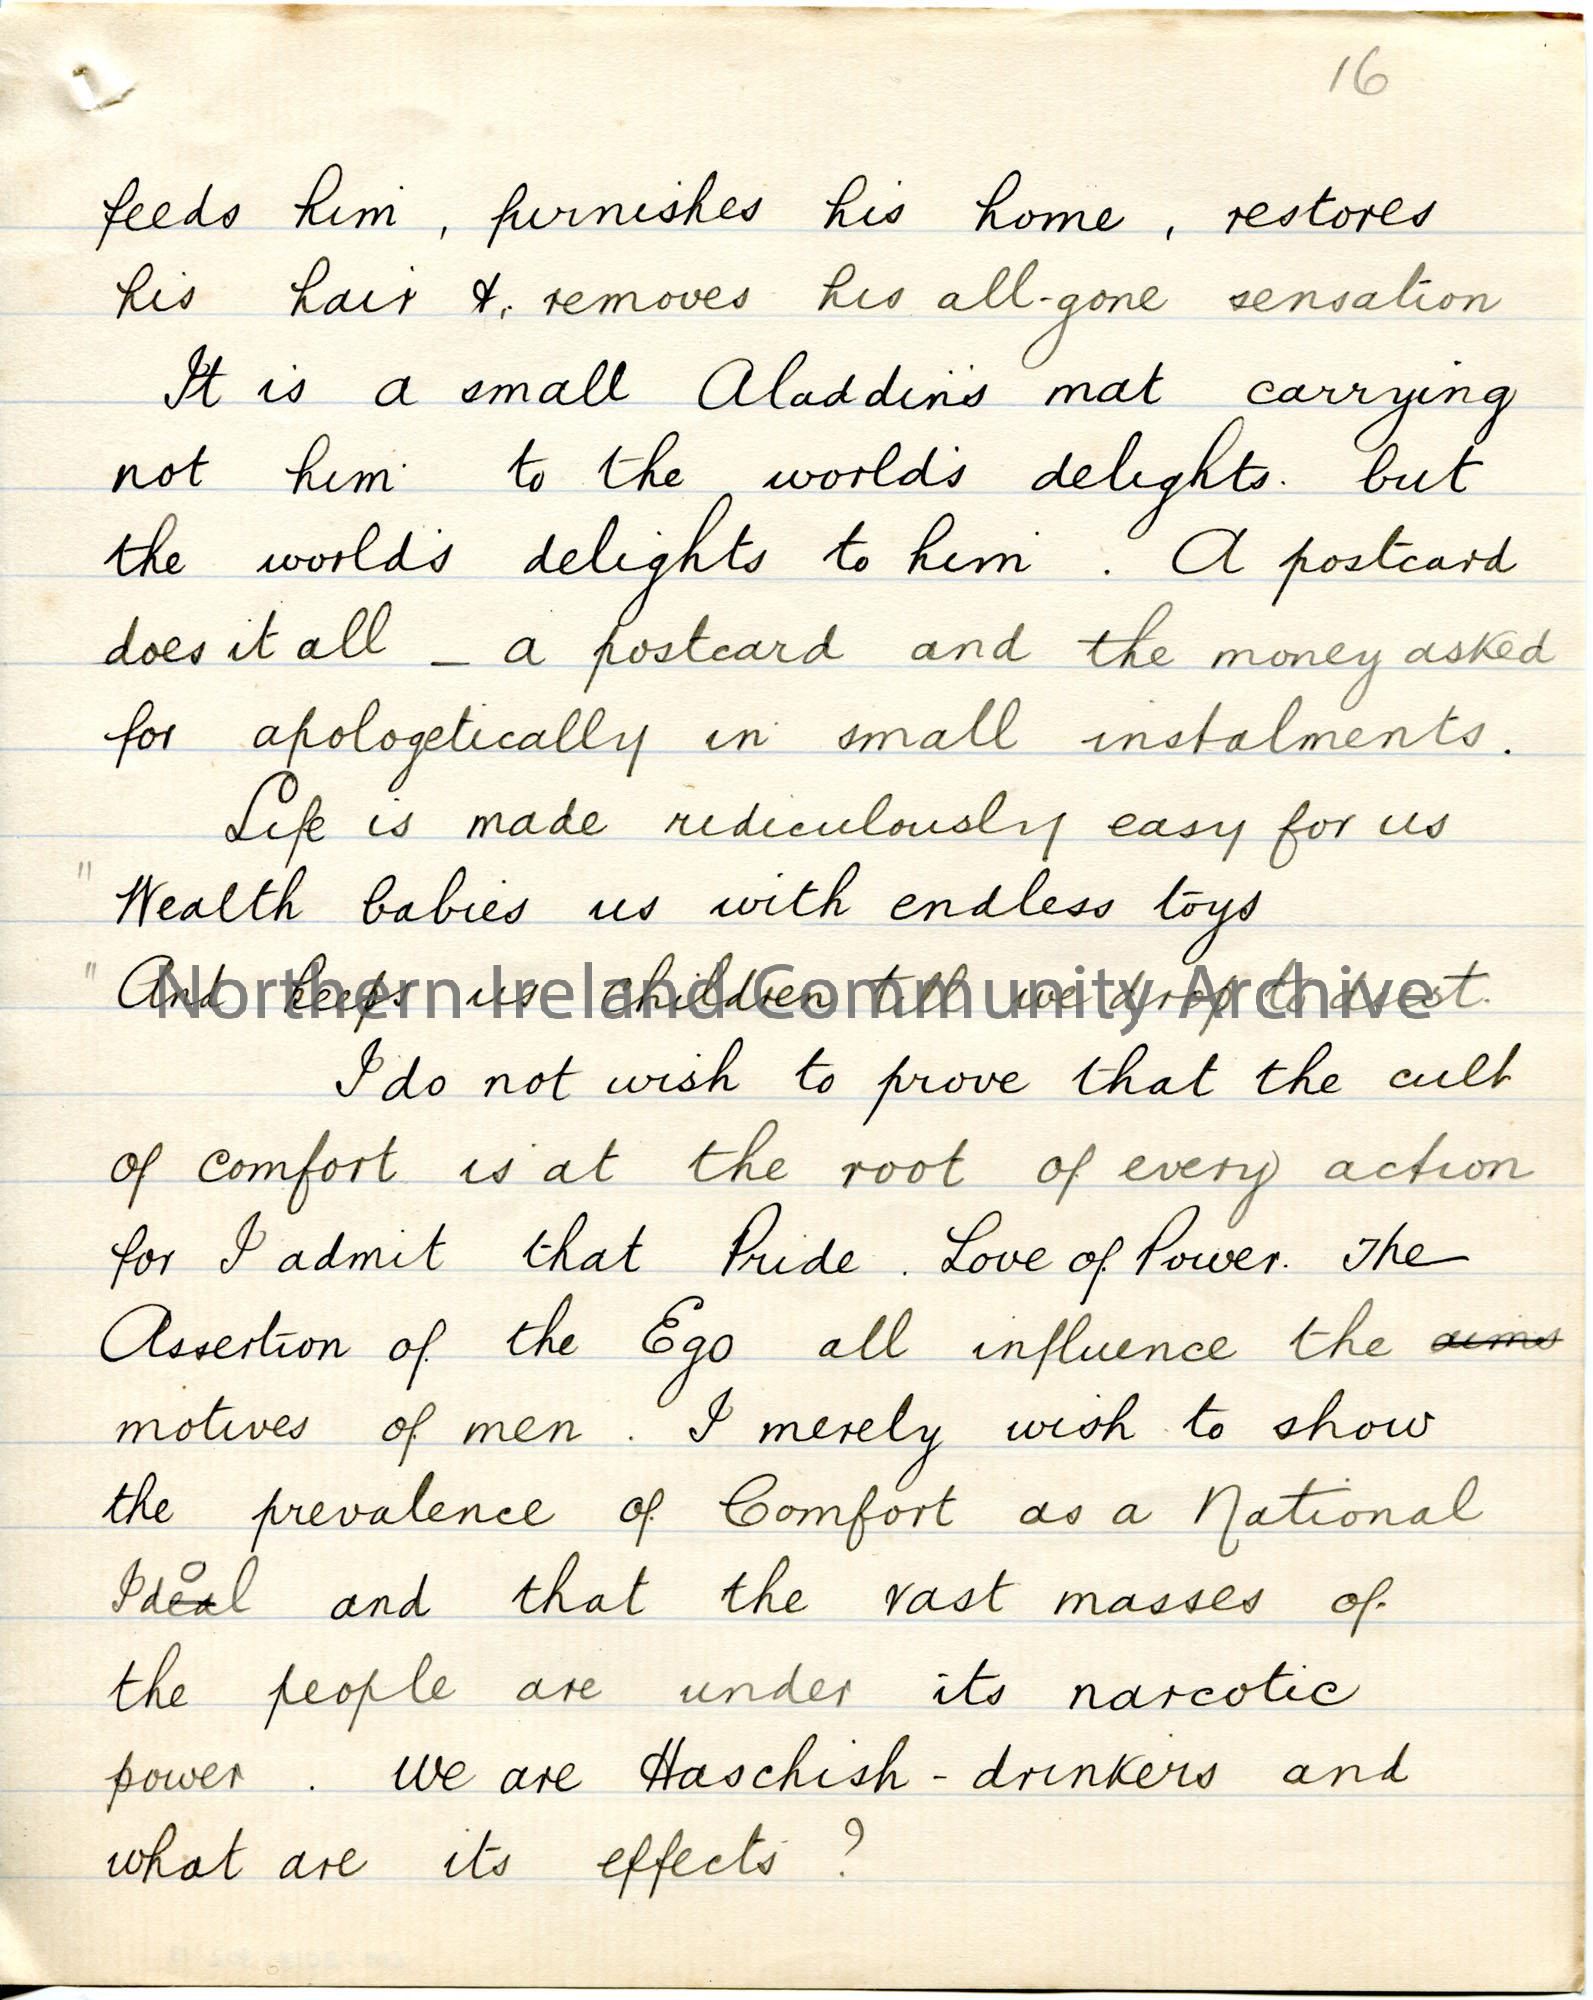 16
feeds him, furnishes his home, restores
his hair &, removes his all-gone sensation
It is a small Aladdin's mat carrying
not him to the world's delights. but
the world's delights to him. A postcard
does it all – a postcard and the money asked
for apologetically in small instalments.
Life is made ridiculously easy for us
" Wealth babies us with endless toys
" And keeps us children till we drop to dust.
Northern Ireland Community Archive
I do not wish to prove that the cult
of comfort is at the root of every action
for I admit that Pride. Love of Power. The
Assertion of the Ego all influence the aims
motives of men. I merely wish to show
the prevalence of Comfort as a National
Idol and that the vast masses of
the people are under its narcotic
power. We are Haschish-drinkers and
what are its effects?